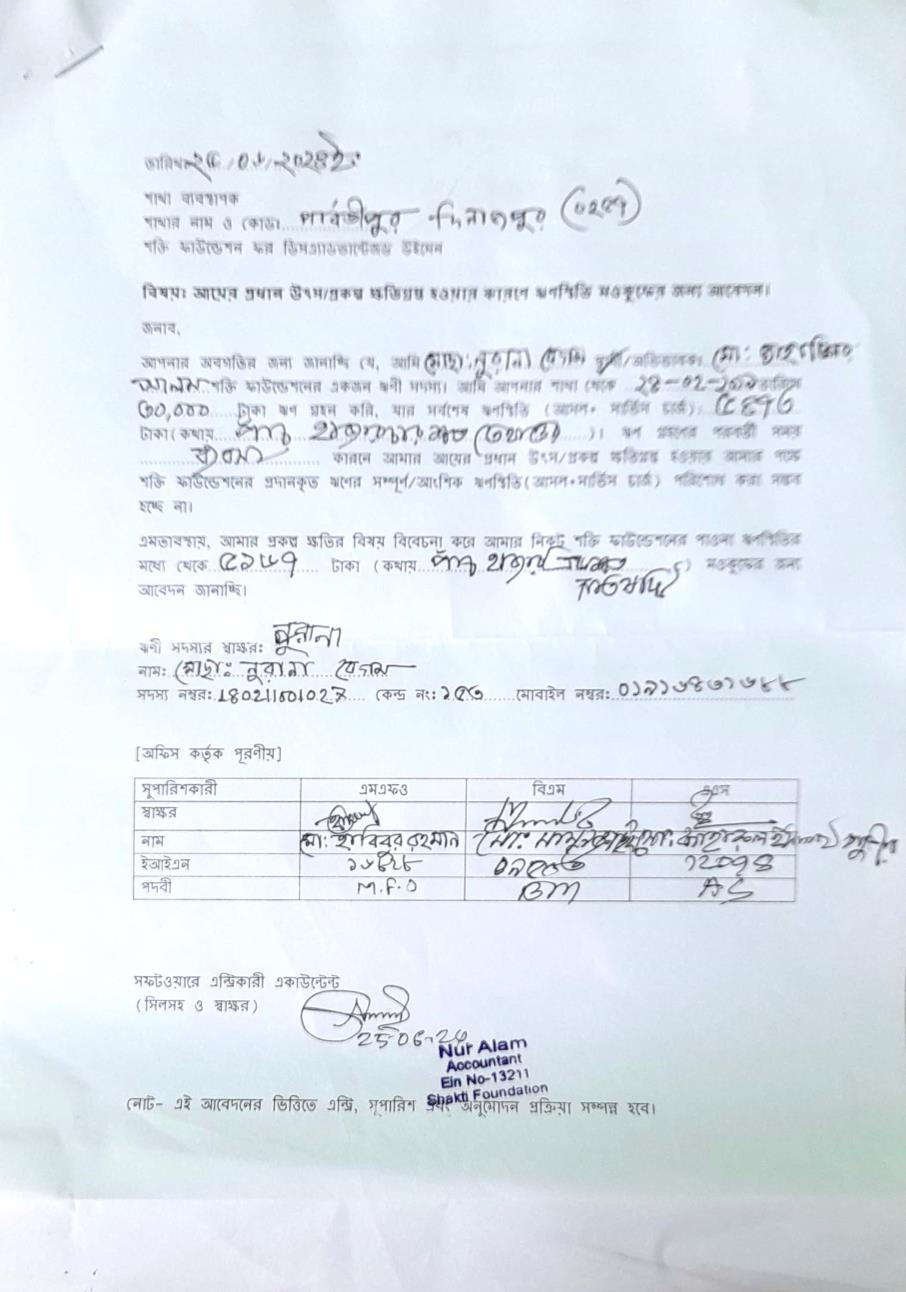 তারিখঃ২৫/০৬/২০২৪ইং
শাখা ব্যবস্থাপক
শাখার নাম ও কোডঃ পার্বতীপুর দিনাজপুর
শক্তি ফাউন্ডেশন ফর ডিসএ্যাডভান্টেজড উইমেন
বিষয়ঃ আয়ের প্রধান উৎস/প্রকল্প ক্ষতিগ্রস্থ হওয়ার কারণে ঋণস্থিতি মওকুফের জন্য আবেদন।
জনাব,
আপনার অবগতির জন্য জানাচ্ছি যে, আমি মোছা: নুরানা বেগম স্বামী/অভিভাবকঃ মো:
আলম শক্তি ফাউন্ডেশনের একজন ঋণী সদস্য। আমি আপনার শাখা থেকে ২৪-০২- তারিখে
৩০,০০০ টাকা ঋণ গ্রহন করি, যার সর্বশেষ ঋণস্থিতি (আসল+ সার্ভিস চার্জ)
টাকা(কথায় পাঁচ হাজার )। ঋণ গ্রহণের পরবর্তী সময়
কারনে আমার আয়ের প্রধান উৎস/প্রকল্প ক্ষতিগ্রস্থ হওয়ায় আমার পক্ষে
শক্তি ফাউন্ডেশনের প্রদানকৃত ঋণের সম্পূর্ণ/আংশিক ঋণস্থিতি(আসল+সার্ভিস চার্জ) পরিশোধ করা সম্ভব
হচ্ছে না।
এমতাবস্থায়, আমার প্রকল্প ক্ষতির বিষয় বিবেচনা করে আমার নিকট শক্তি ফাউন্ডেশনের পাওনা ঋণস্থিতির
মধ্যে থেকে টাকা (কথায় পাঁচ হাজার ) মওকুফের জন্য
আবেদন জানাচ্ছি।
ঋণী সদস্যার স্বাক্ষর: নুরানা
নাম: মোছা: নুরানা বেগম
সদস্য নম্বর: কেন্দ্র নং: ১৫৩ মোবাইল নম্বর:
[অফিস কর্তৃক পূরণীয়]
সুপারিশকারী এমএফও বিএম এএস
স্বাক্ষর
নাম মো: হাবিবুর রহমান মো:
ইআইএন 12094
পদবী M.F.O BM AS
সফটওয়্যারে এন্ট্রিকারী একাউন্টেন্ট
(সিলসহ ও স্বাক্ষর)
25-06-24
Nur Alam
Accountant
Ein No-13211
Shakti Foundation
নোট- এই আবেদনের ভিত্তিতে এন্ট্রি, সুপারিশ এবং অনুমোদন প্রক্রিয়া সম্পন্ন হবে।